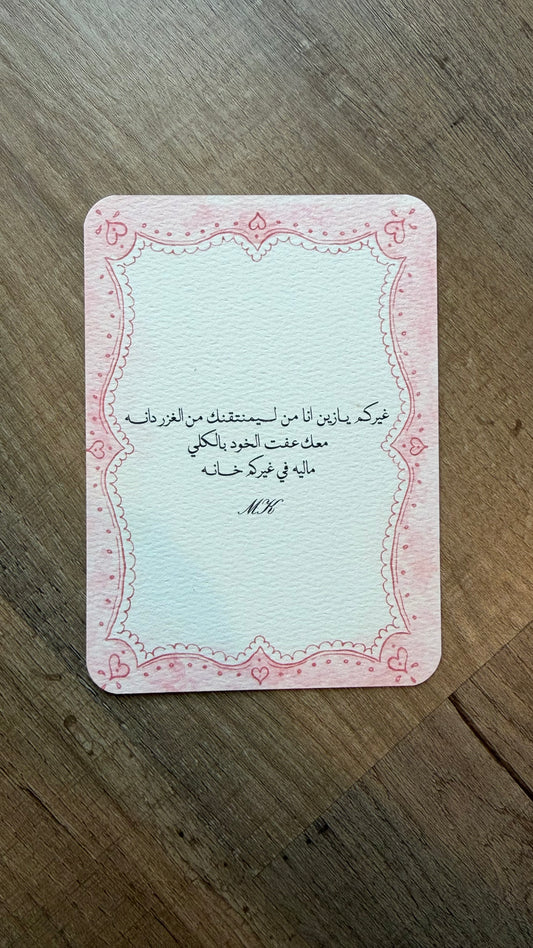 غيركم يازين انا من ليمنتقنك من الغزر دانه
معك عفت الخود بالكلي
ماليه في غيركم خانه
MK